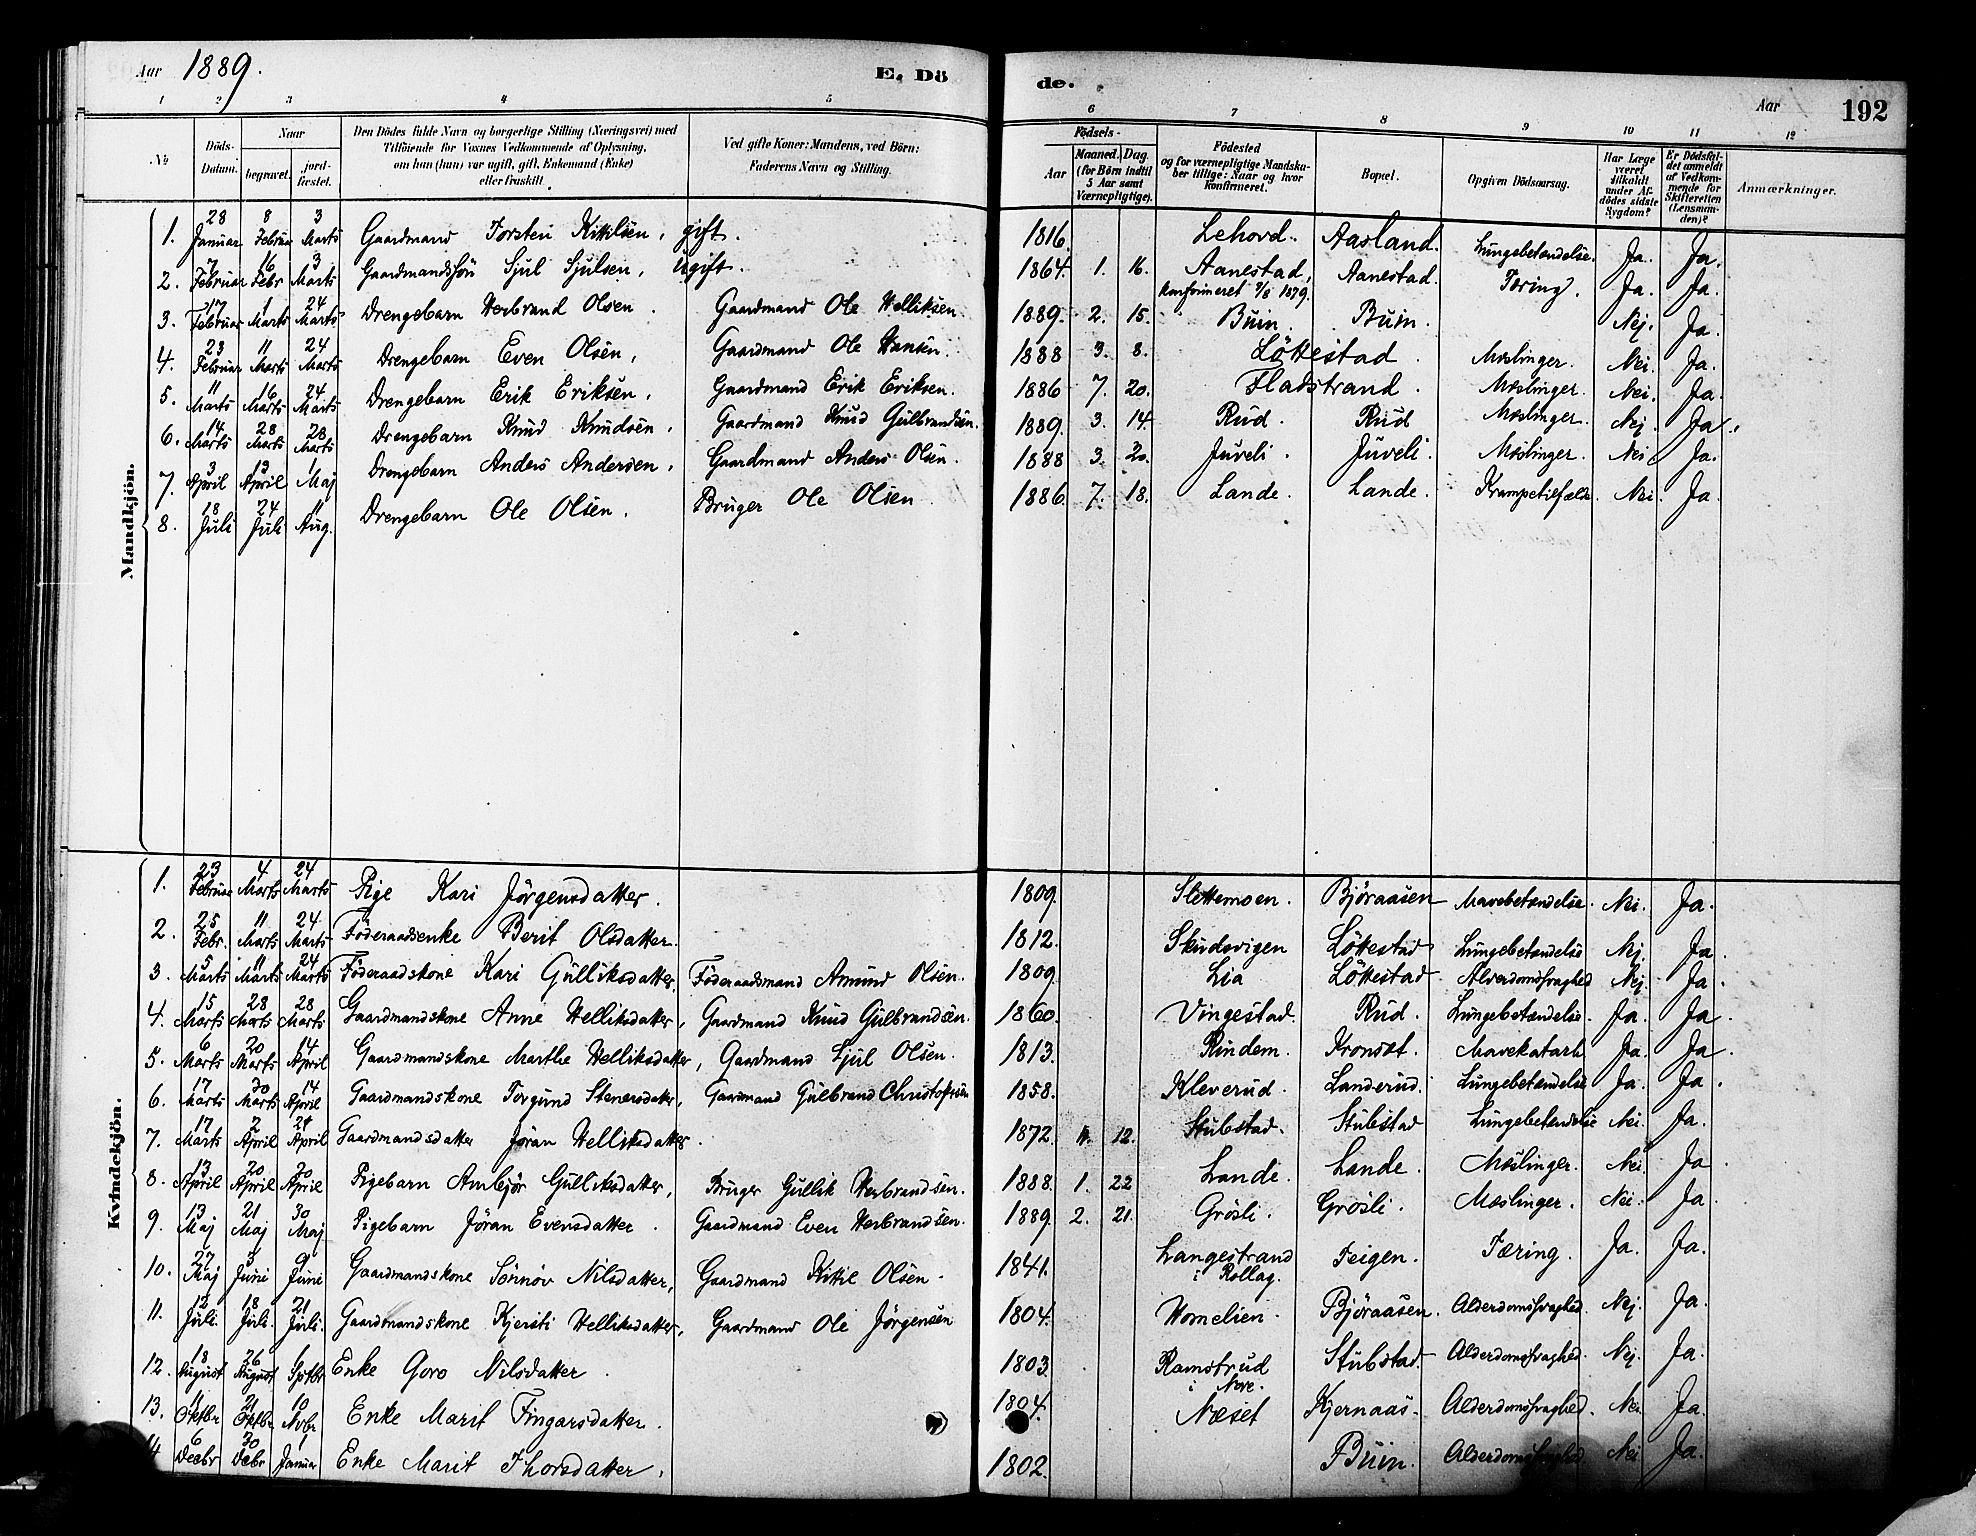 Aar 1889. E. Döde. Aar 192
1 2 3 4 5 6 7 8 9 10 11 12
№ Döds-Datum. Naar begravet. jord-fæstet. Den Dödes fulde Navn og borgerlige Stilling (Næringsvei) med Tilföiende for Voxnes Vedkommende af Oplysning, om han (hun) var ugift, gift, Enkemand (Enke) eller fraskilt. Ved gifte Koner: Mandens, ved Börn: Faderens Navn og Stilling. Födsels- Aar Maaned. Dag. (for Börn indtil 5 Aar samt Værnepligtige). Födested og for værnepligtige Mandskaber tillige: Naar og hvor konfirmeret. Bopæl. Opgiven Dödsaarsag. Har Læge været tilkaldt under Afdödes sidste Sygdom? Er Dödsfaldet anmeldt af Vedkommende for Skifteretten (Lensmanden)? Anmærkninger.
Mandkjön.
1. 28 Januar 8 Februar 3 Marts Gaardmand Torsten Kittilsen, gift. 1816. Lehovd. Aasland. Lungebetændelse. Ja. Ja.
2. 7 Februar 16 Febr 3 Marts Gaardmandssön Sjul Sjulsen, Ugift. 1864. 1. 16. Aanestad, konfirmeret 3/8 1879. Aanestad. Tæring. Ja. Ja.
3. 17 Februar 1 Marts 24 Marts Drengebarn Herbrand Olsen Gaardmand Ole Helliksen. 1889. 2. 15. Buin. Buin. Nej. Ja.
4. 23 Februar 11 Marts 24 Marts Drengebarn Even Olsen, Gaardmand Ole Hansen. 1888 3. 8. Löttestad. Mæslinger. Nei. Ja.
5. 11 Marts 16 Marts 24 Marts Drengebarn Erik Eriksen, Gaardmand Erik Eriksen. 1886 7. 20. Fladstrand. Mæslinger. Nei. Ja.
6. 14 Marts 28 Marts 28 Marts Drengebarn Knud Knudsen, Gaardmand Knud Gulbrandsen. 1889. 3. 14. Rud. Rud Mæslinger. Nej. Ja.
7. 3 April 13 April 1 Maj Drengebarn Anders Andersen, Gaardmand Anders Olsen. 1888 3. 20. Juveli. Juveli. Mæslinger. Nei. Ja.
8. 18 Juli 24 Juli 11 Aug. Drengebarn Ole Olsen. Bruger Ole Olsen. 1886. 7. 18. Lande. Lande. Krampetilfælde. Nei. Ja
Kvindekjön.
1. 23 Februar 4 Marts 24 Marts Pige Kari Jörgensdatter. 1809. Slettemoen. Björaasen Mavebetændelse. Nei. Ja.
2. 25 Febr. 11 Marts 24 Marts Föderaadsenke Berit Olsdatter. 1812. Skudsvigen Löttestad Lungebetændelse Nej. Ja.
3. 5 Marts 11 Marts 24 Marts Föderaadskone Kari Gulliksdatter, Föderaadsmand Amund Olsen. 1809. Lia Löttestad Alderdomssvaghed Nej. Ja.
4. 15 Marts 28 Marts 28 Marts Gaardmandskone Anne Helliksdatter, Gaardmand Knud Gulbrandsen. 1860. Vingestad. Rud. Lungebetændelse. Ja. Ja.
5. 6 Marts 20 Marts 14 April Gaardmandskone Marthe Helliksdatter, Gaardmand Sjul Olsen. 1813. Rindem. Kronset. Mavekatarh Ja. Ja.
6. 17 Marts 30 Marts 14 April Gaardmandskone Torgund Stenersdatter, Gaardmand Gulbrand Christofersen 1858. Kleverud. Landerud. Lungebetændelse Ja. Ja.
7. 17 Marts 2 April 24 April Gaardmandsdatter Jöran Helliksdatter. 1872. 11. 12. Stubstad. Stubstad Lungebetændelse Nei. Ja.
8. 13 April 20 April 20 April Pigebarn Ambjör Gulliksdatter, Bruger Gullik Herbrandsen. 1888. 1. 22 Lande. Lande. Mæslinger. Nei Ja
9. 13 Maj 21 Maj 30 Maj Pigebarn Jöran Evensdatter. Gaardmand Even Herbrandsen. 1889. 2. 21. Grösli. Grösli. Mæslinger. Nei. Ja.
10. 27 Maj 3 Juni 9 Juni Gaardmandskone Sönnöv Nilsdatter, Gaardmand Kittil Olsen. 1841. Langestrand i Rollag. Teigen. Tæring. Ja. Ja.
11. 12 Juli. 18 Juli. 21 Juli. Gaardmandskone Kjersti Helliksdatter, Gaardmand Ole Jörgensen 1804. Homelien. Björaasen. Alderdomssvaghed. Nej. Ja.
12. 18 August 26 August 1 Septbr Enke Goro Nilsdatter. 1803. Ramstrud i Nore. Stubstad. Alderdomssvaghed. Nej. Ja.
13. 11 Oktbr 21 Oktbr 10 Novbr Enke Marit Fingarsdatter. 1804. Næset Kjernaas. Alderdomssvaghed. Nei. Ja.
14 6 Decbr 30 Decbr 1 Januar Enke Marit Thorsdatter. 1802. Buin. Alderdomssvaghed Nei Ja.